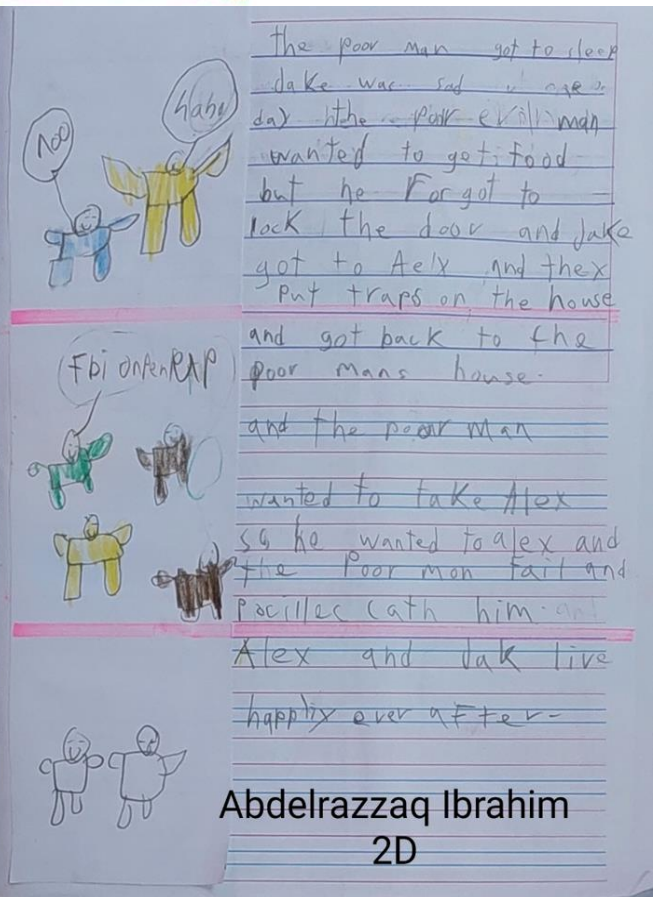 the poor man got to sleep
Jake was sad one
day the poor evil man
wanted to get food
but he Forgot to
lock the door and Jake
got to Aelx and thex
put traps on the house
and got back to the
poor mans house.
and the poor man
wanted to take Alex
so he wanted to alex and
the Poor man fail and
pocillec cath him. an
Alex and Jak live
happliy ever after-
noo
hahe
Fbi onpenRAP
Abdelrazzaq Ibrahim
2D